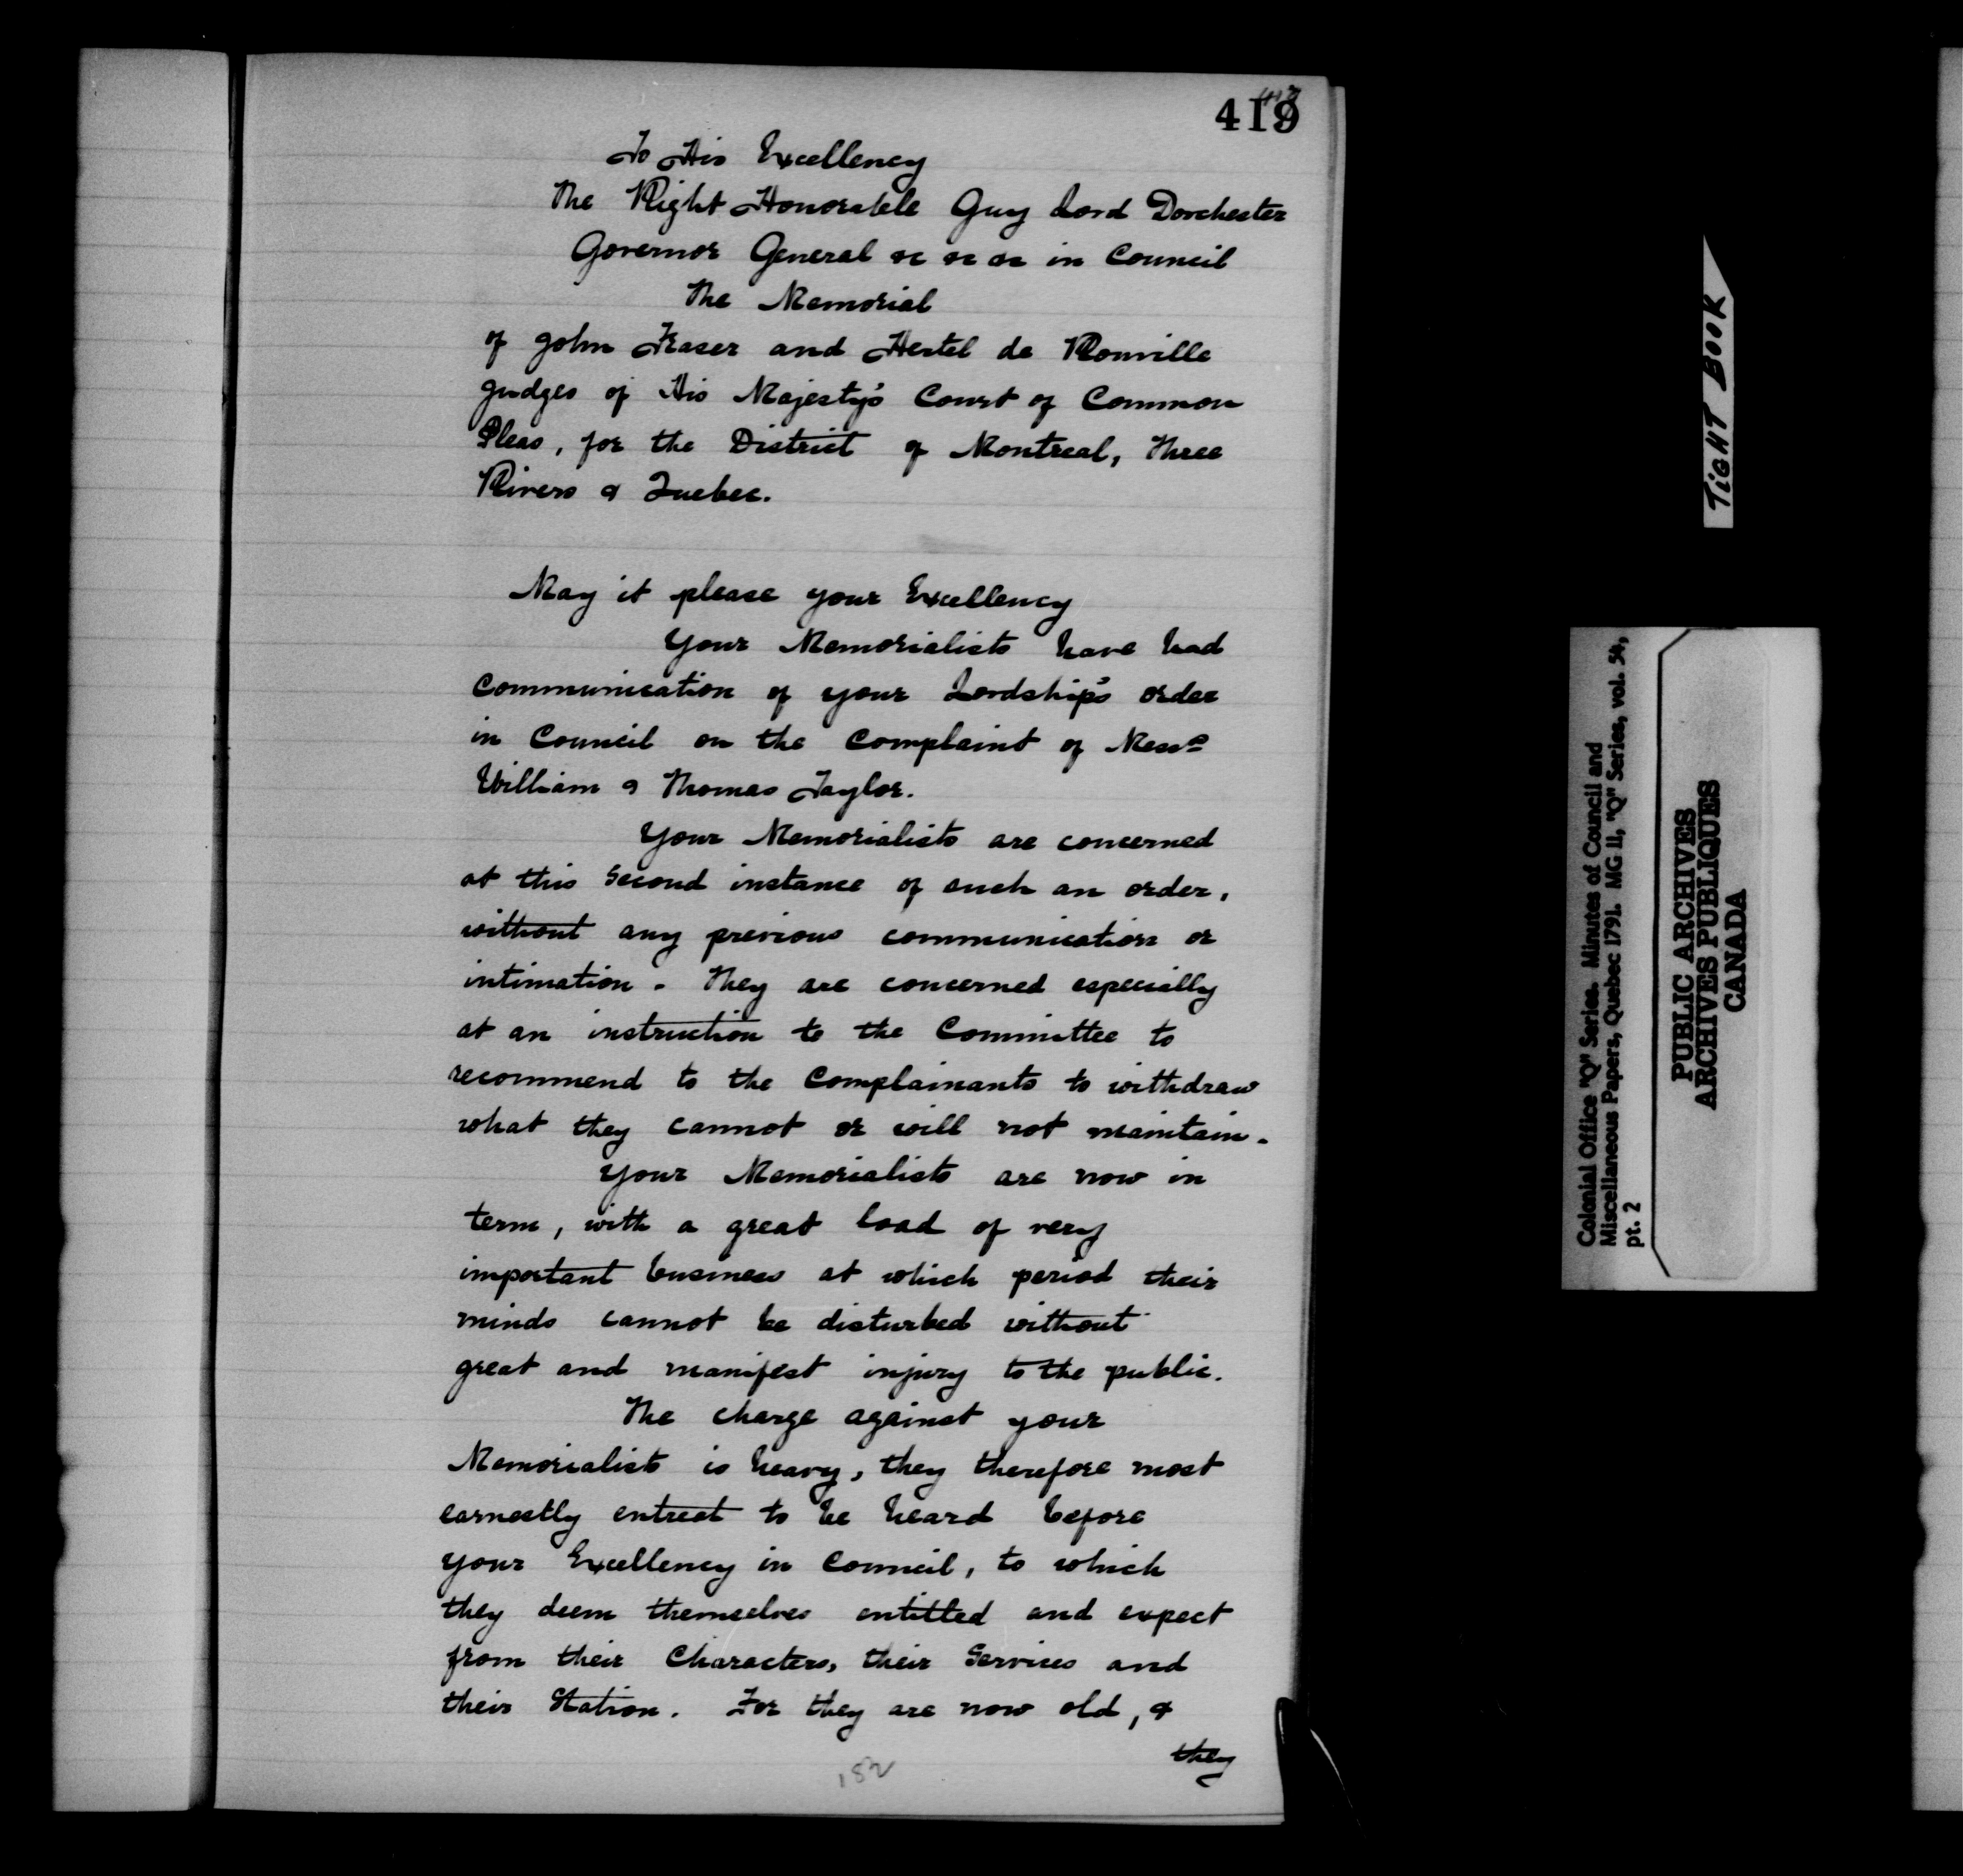 419
To His Excellency
The Right Honorable Guy Lord Dorchester
Governor General &c &c &c in Council
The Memorial
of John Fraser and Hertel de Rouville
Judges of His Majesty's Court of Common
Pleas, for the District of Montreal, Three
Rivers & Quebec.
May it please your Excellency
Your Memorialists have had
Communication of your Lordship's order
in Council on the Complaint of Messrs
William & Thomas Taylor.
Your Memorialists are concerned
at this Second instance of such an order,
without any previous communication or
intimation. They are concerned especially
at an instruction to the Committee to
recommend to the Complainants to withdraw
what they cannot or will not maintain.
Your Memorialists are now in
term, with a great load of very
important business at which period their
minds cannot be disturbed without
great and manifest injury to the public.
The charge against your
Memorialists is heavy, they therefore most
earnestly entreat to be heard before
your Excellency in Council, to which
they deem themselves entitled and expect
from their Characters, their Services and
their Station. For they are now old, &
they
182
TIGHT BOOK
Colonial Office "Q" Series. Minutes of Council and
Miscellaneous Papers, Quebec 1791. MG 11, "Q" Series, vol. 54,
pt. 2
PUBLIC ARCHIVES
ARCHIVES PUBLIQUES
CANADA